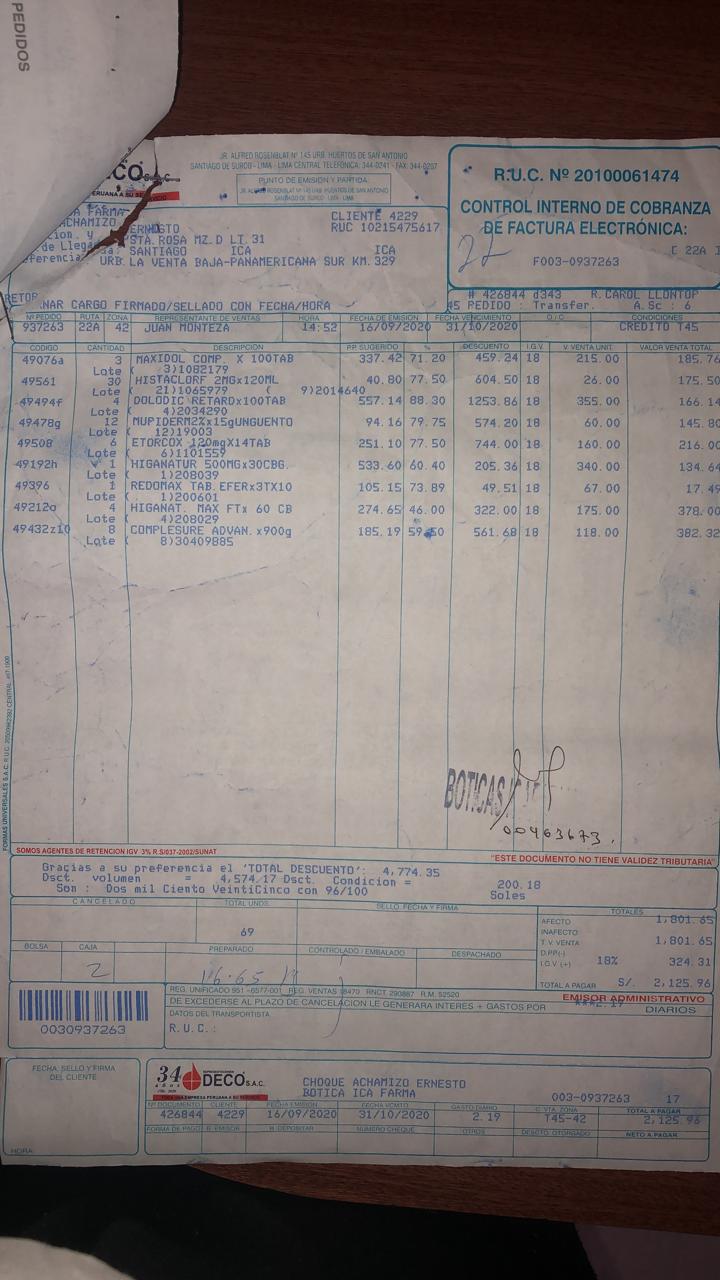 PEDIDOS
CO S.A.C.
PERUANA A SU SERVICIO
JR. ALFRED ROSENBLAT Nº 145 URB. HUERTOS DE SAN ANTONIO
SANTIAGO DE SURCO - LIMA - LIMA CENTRAL TELEFÓNICA: 344-0241 - FAX: 344-0207
PUNTO DE EMISIÓN Y PARTIDA
JR. ALFRED ROSENBLAT Nº 145 URB. HUERTOS DE SAN ANTONIO
SANTIAGO DE SURCO - LIMA - LIMA
R.U.C. Nº 20100061474
CONTROL INTERNO DE COBRANZA
DE FACTURA ELECTRÓNICA:
22
F003-0937263
FARMA
CLIENTE 4229
ACHAMIZO ERNESTO
RUC 10215475617
STA.ROSA MZ.D LT.31
de Llegada: SANTIAGO ICA ICA
URB.LA VENTA BAJA-PANAMERICANA SUR KM.329
RETOR NAR CARGO FIRMADO/SELLADO CON FECHA/HORA
# 426844 d343 R.CAROL LLONTOP
45 PEDIDO : Transfer. A.Sc : 6
Nº PEDIDO RUTA ZONA REPRESENTANTE DE VENTAS HORA FECHA DE EMISION FECHA VENCIMIENTO O/C CONDICIONES
937263 22A 42 JUAN MONTEZA 14:52 16/09/2020 31/10/2020 CREDITO T45
CODIGO CANTIDAD DESCRIPCION P.P. SUGERIDO % DESCUENTO I.G.V. V. VENTA UNIT. VALOR VENTA TOTAL
49076a 3 MAXIDOL COMP. X 100TAB 337.42 71.20 459.24 18 215.00 185.76
Lote ( 3)1082179
49561 30 HISTACLORF 2MGx120ML 40.80 77.50 604.50 18 26.00 175.50
Lote ( 21)1065979 ( 9)2014640
49494f 4 DOLODIC RETARDx100TAB 557.14 88.30 1253.86 18 355.00 166.14
Lote ( 4)2034290
49478g 12 MUPIDERM2%x15gUNGUENTO 94.16 79.75 574.20 18 60.00 145.80
Lote ( 12)19003
49508 6 ETORCOX 120mgX14TAB 251.10 77.50 744.00 18 160.00 216.00
Lote ( 6)1101559
49192h 1 HIGANATUR 500MGx30CBG. 533.60 60.40 205.36 18 340.00 134.64
Lote ( 1)208039
49396 1 REDOMAX TAB.EFERx3TX10 105.15 73.89 49.51 18 67.00 17.49
Lote ( 1)200601
49212o 4 HIGANAT. MAX FTx 60 CB 274.65 46.00 322.00 18 175.00 378.00
Lote ( 4)208029
49432z10 8 COMPLESURE ADVAN.x900g 185.19 59.50 561.68 18 118.00 382.32
Lote ( 8)30409885
BOTICAS
00463673.
SOMOS AGENTES DE RETENCION IGV 3% R.S/037-2002/SUNAT
"ESTE DOCUMENTO NO TIENE VALIDEZ TRIBUTARIA"
Gracias a su preferencia el 'TOTAL DESCUENTO': 4,774.35
Dsct. volumen = 4,574.17 Dsct. Condicion = 200.18
Son : Dos mil Ciento VeintiCinco con 96/100 Soles
CANCELADO
TOTAL UNDS.
69
SELLO, FECHA Y FIRMA
TOTALES
AFECTO 1,801.65
INAFECTO
T.V. VENTA 1,801.65
D.PP(-)
I.G.V (+) 18% 324.31
TOTAL A PAGAR S/. 2,125.96
BOLSA CAJA PREPARADO CONTROLADO / EMBALADO DESPACHADO
2
REG. UNIFICADO 951 -6577-001 REG. VENTAS 98470 RNCT. 290887 R.M. 52520
EMISOR ADMINISTRATIVO
DE EXCEDERSE AL PLAZO DE CANCELACION LE GENERARA INTERES + GASTOS POR ***2.19 DIARIOS
DATOS DEL TRANSPORTISTA
R.U.C.:
0030937263
FECHA, SELLO Y FIRMA
DEL CLIENTE
HORA:
34 años
DECO S.A.C.
CHOQUE ACHAMIZO ERNESTO
BOTICA ICA FARMA
003-0937263 17
Nº DOCUMENTO CLIENTE FECHA EMISION FECHA VCMTO GASTO DIARIO C. VTA. ZONA TOTAL A PAGAR
426844 4229 16/09/2020 31/10/2020 2.19 T45-42 2,125.96
FORMA DE PAGO B. EMISOR B. DEPOSITAR NUMERO CHEQUE OTROS DESCTO. OTORGADO NETO A PAGAR